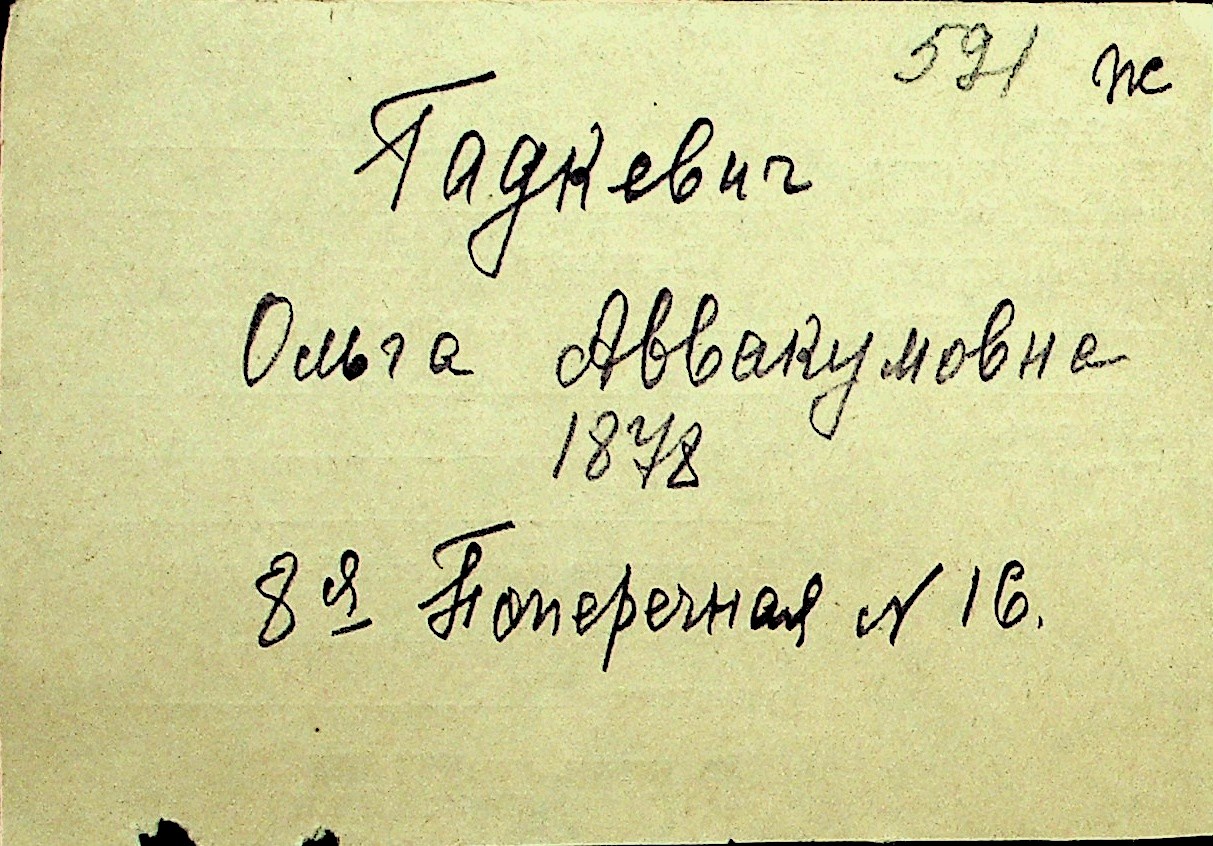 591 ж
Гадкевич
Ольга Аввакумовна
1878
8я Поперечная N 16.